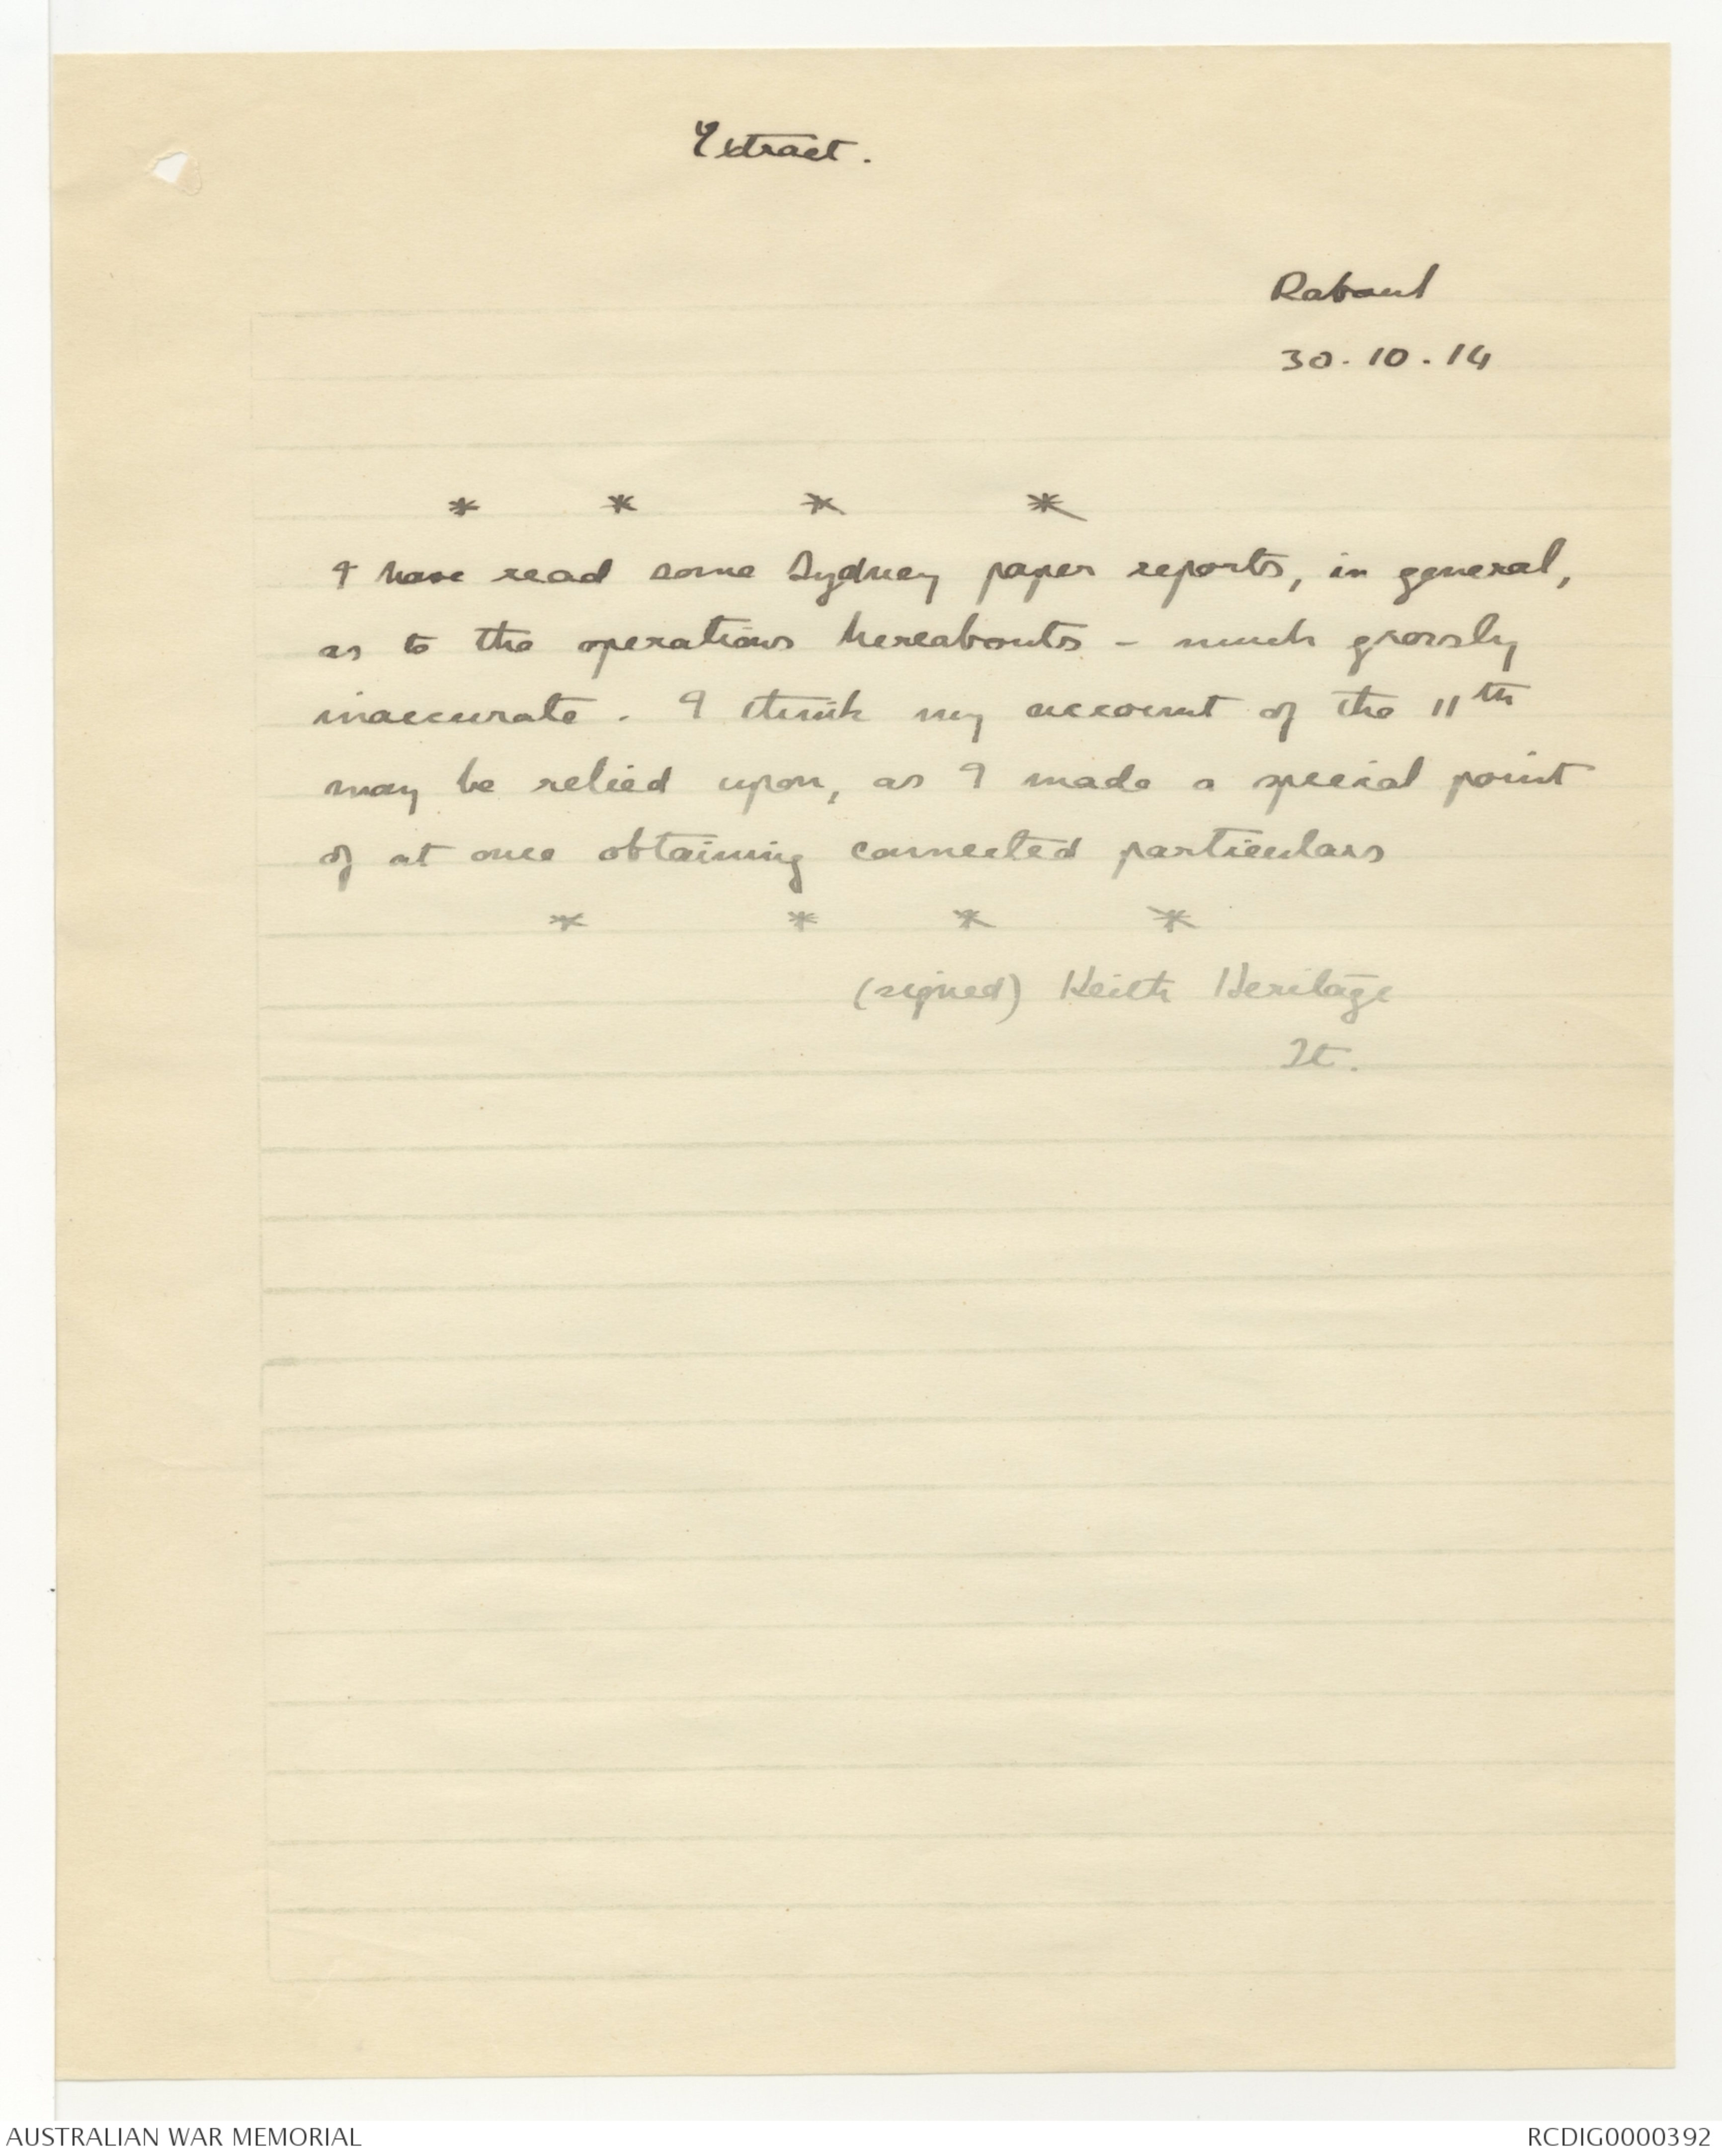 Extract.
Rabaul
30.10.14
* * * *
I have read some Sydney paper reports, in general,
as to the operations hereabouts - much grossly
inaccurate. I think my account of the 11th
may be relied upon, as I made a special point
of at once obtaining connected particulars
* * * *
(signed) Keith Heritage
Lt.
AUSTRALIAN WAR MEMORIAL
RCDIG0000392